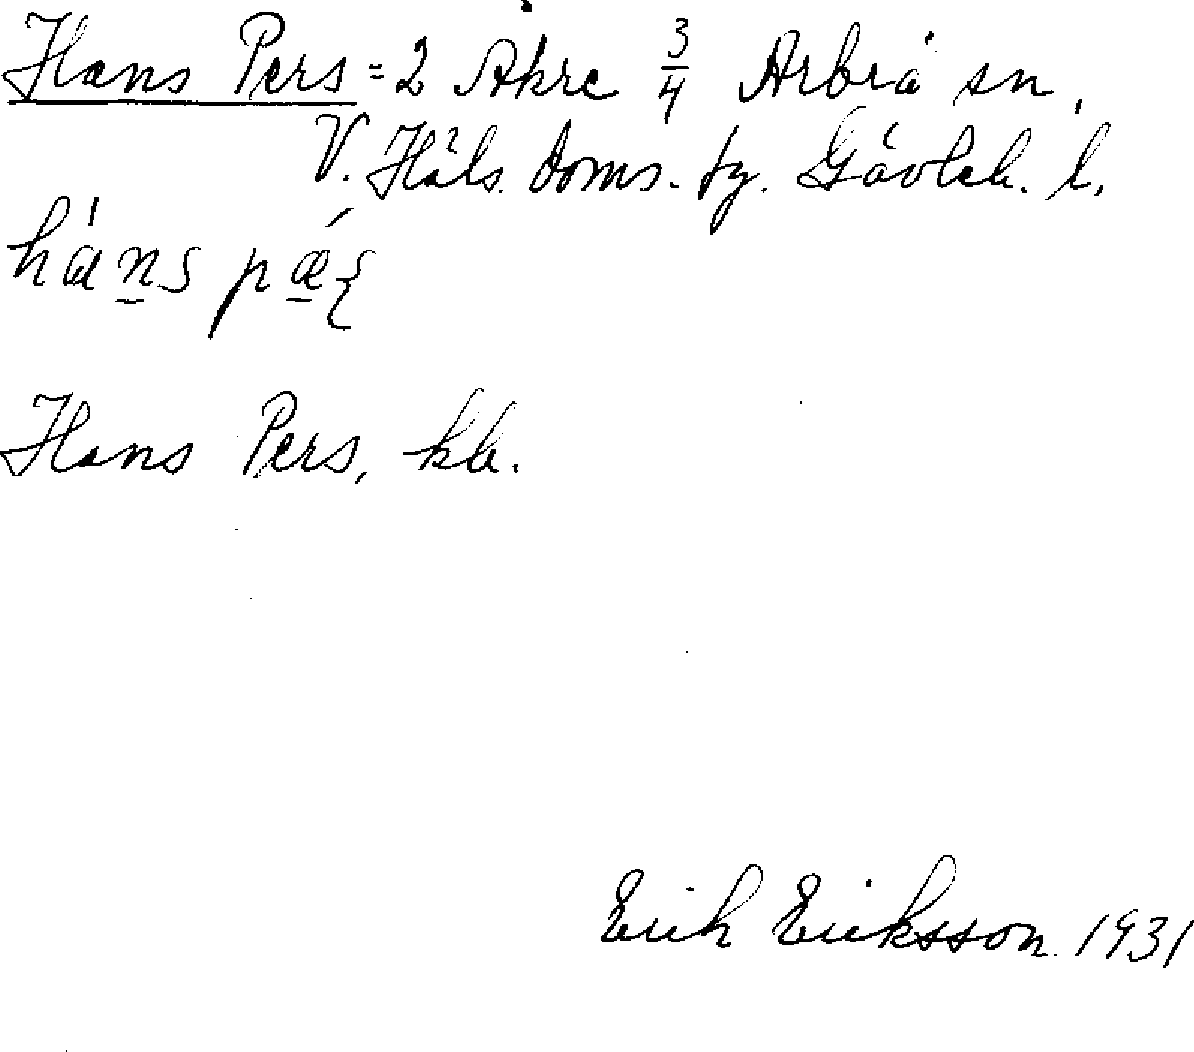 Hans Pers = 2 Akre 3/4 Arbrå sn,
V. Häls. doms. fg. Gävleb. l.
háns pǽ
Hans Pers, kb.
Erik Eriksson 1931